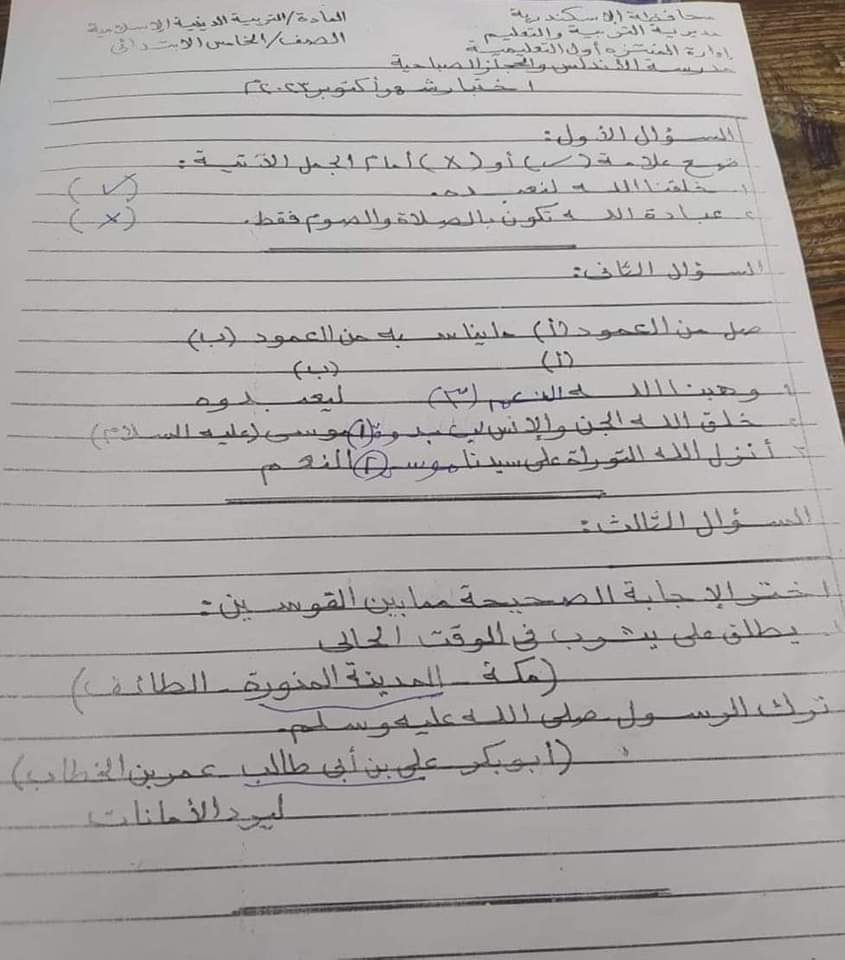 محافظة الاسكندرية
المادة/التربية الدينية الإسلامية
مديرية التربية والتعليم
الصف/الخامس الابتدائى
إدارة المنتزه أول التعليمية
مدرسة الأندلس والحجاز الصباحية
اختبار شهر أكتوبر ٢٠٢٣م
السؤال الأول:
ضع علامة (✓) أو (X) أمام الجمل الآتية:
١. خلقنا الله لنعبده. (✓)
٢. عبادة الله تكون بالصلاة والصوم فقط. (X)
السؤال الثانى:
صل من العمود (أ) مايناسبه من العمود (ب)
(أ) (ب)
١. وهبنا الله النعم (٣) ليعبدوه
٢. خلق الله الجن والإنس ليعبدوه (١) موسى (عليه السلام)
٣. أنزل الله التوراة على سيدنا موسى (٢) النعم
السؤال الثالث:
اختر الإجابة الصحيحة ممابين القوسين:
١. يطلق على يثرب فى الوقت الحالى
(مكة - المدينة المنورة - الطائف)
ترك الرسول صلى الله عليه وسلم.
(أبوبكر على بن أبى طالب عمر بن الخطاب)
ليرد الأمانات